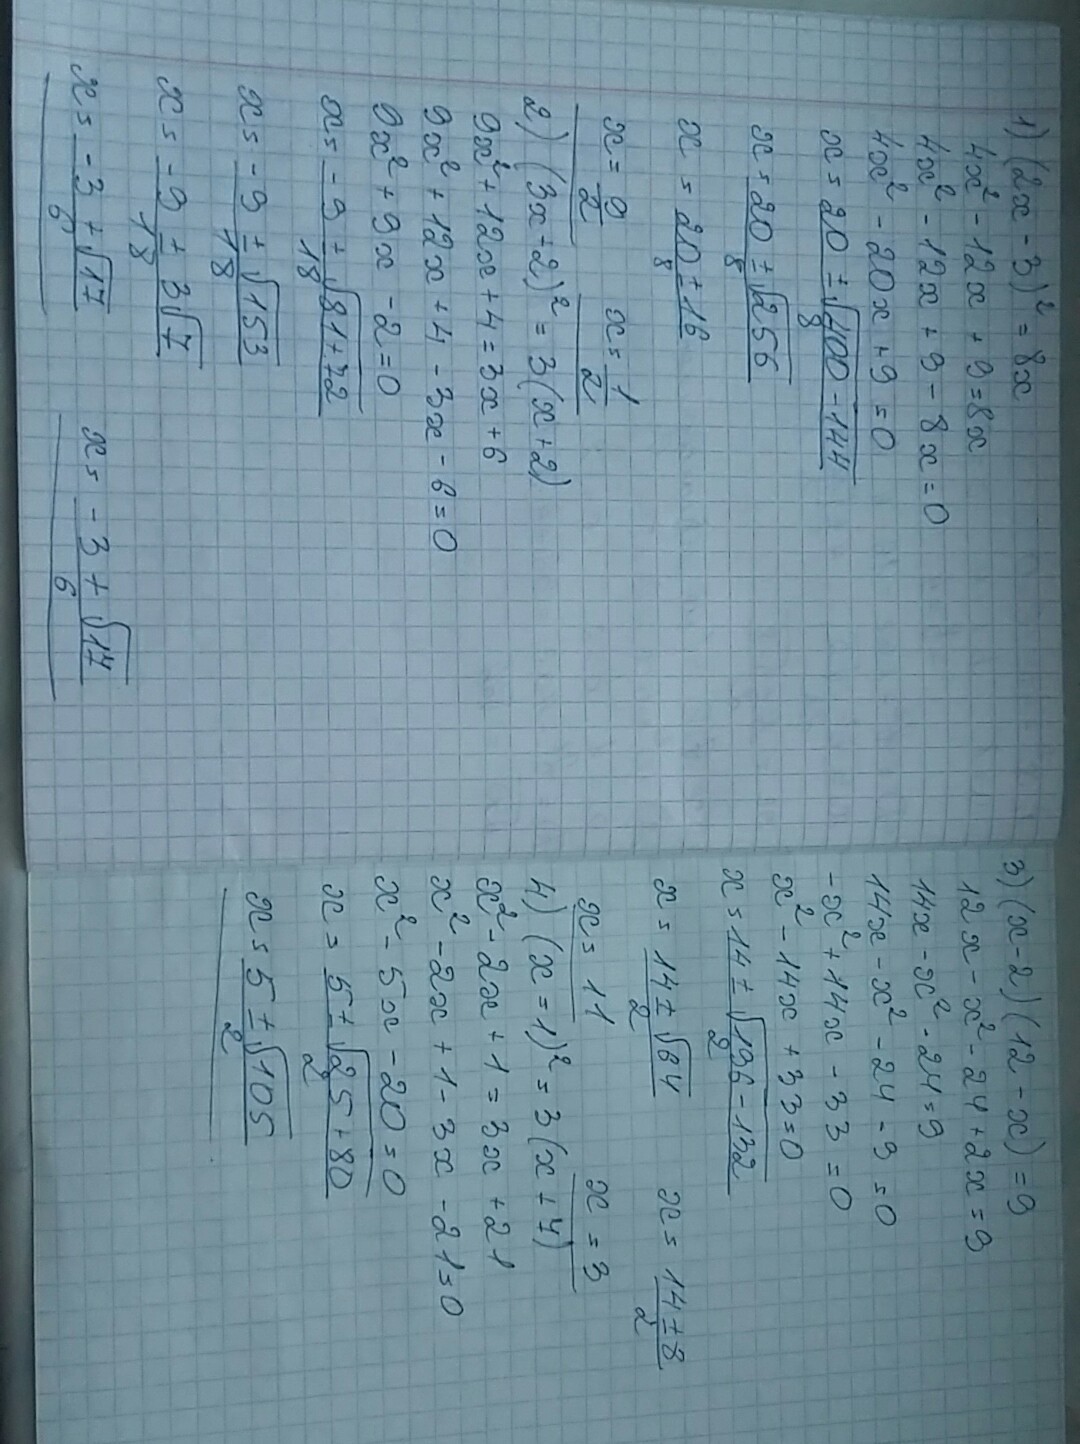 1) (2x - 3)² = 8x
4x² - 12x + 9 = 8x
4x² - 12x + 9 - 8x = 0
4x² - 20x + 9 = 0
x = (20 ± √(400 - 144))/8
x = (20 ± √256)/8
x = (20 ± 16)/8
x = 9/2    x = 1/2
2) (3x + 2)² = 3(x + 2)
9x² + 12x + 4 = 3x + 6
9x² + 12x + 4 - 3x - 6 = 0
9x² + 9x - 2 = 0
x = (-9 ± √(81 + 72))/18
x = (-9 ± √153)/18
x = (-9 ± 3√7)/18
x = (-3 + √17)/6    x = (-3 + √17)/6
3) (x - 2)(12 - x) = 9
12x - x² - 24 + 2x = 9
14x - x² - 24 = 9
14x - x² - 24 - 9 = 0
-x² + 14x - 33 = 0
x² - 14x + 33 = 0
x = (14 ± √(196 - 132))/2
x = (14 ± √64)/2    x = (14 ± 8)/2
x = 11    x = 3
4) (x = 1)² = 3(x + 7)
x² - 2x + 1 = 3x + 21
x² - 2x + 1 - 3x - 21 = 0
x² - 5x - 20 = 0
x = (5 ± √(25 + 80))/2
x = (5 ± √105)/2